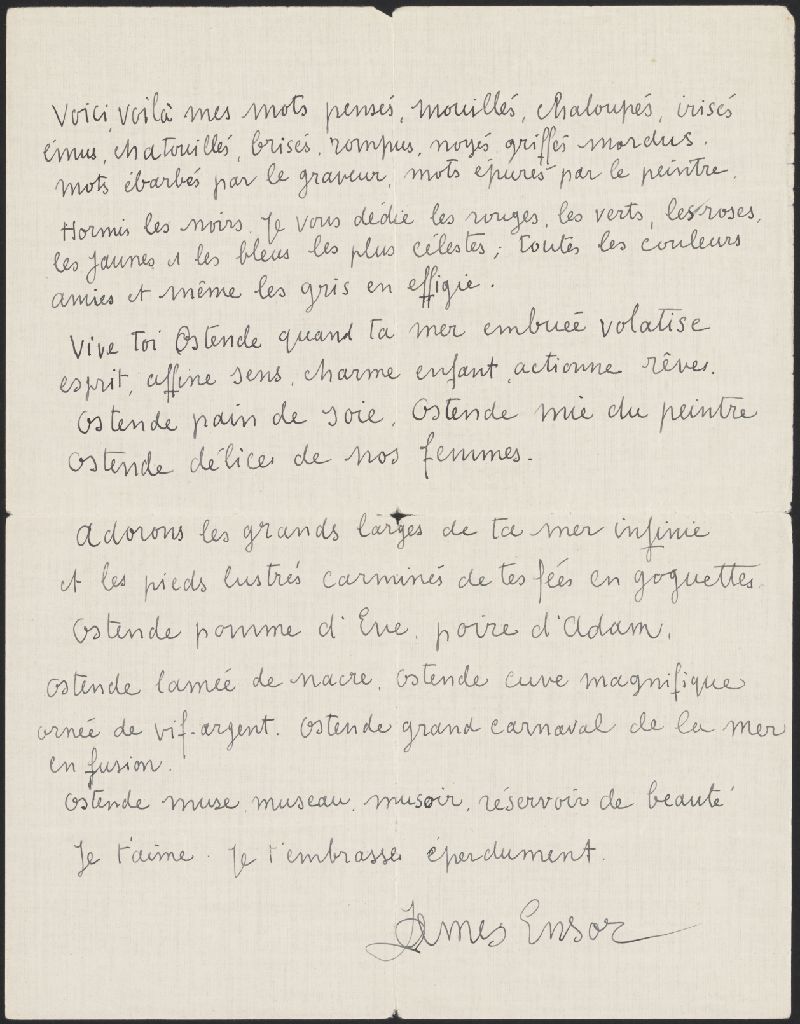 Voici, voilà mes mots pensés, mouillés, chaloupés, irisés
émus, chatouillés, brisés, rompus, noyés griffés mordus.
mots ébarbés par le graveur, mots épurés par le peintre.
Hormis les noirs. Je vous dédie les rouges, les verts, les roses,
les jaunes et les bleus les plus célestes, toutes les couleurs
amies et même les gris en effigie.
Vive toi Ostende quand ta mer embuée volatise
esprit, affine sens, charme enfant, actionne rêves.
Ostende pain de soie, Ostende mie du peintre
Ostende délices de nos femmes.
Adorons les grands larges de ta mer infinie
et les pieds lustrés carminés de tes fées en goguettes.
Ostende pomme d'Eve, poire d'Adam.
Ostende lamée de nacre, Ostende cuve magnifique
ornée de vif-argent. Ostende grand carnaval de la mer
en fusion.
Ostende muse, museau, musoir, réservoir de beauté
Je t'aime. Je t'embrasse éperdument.
James Ensor